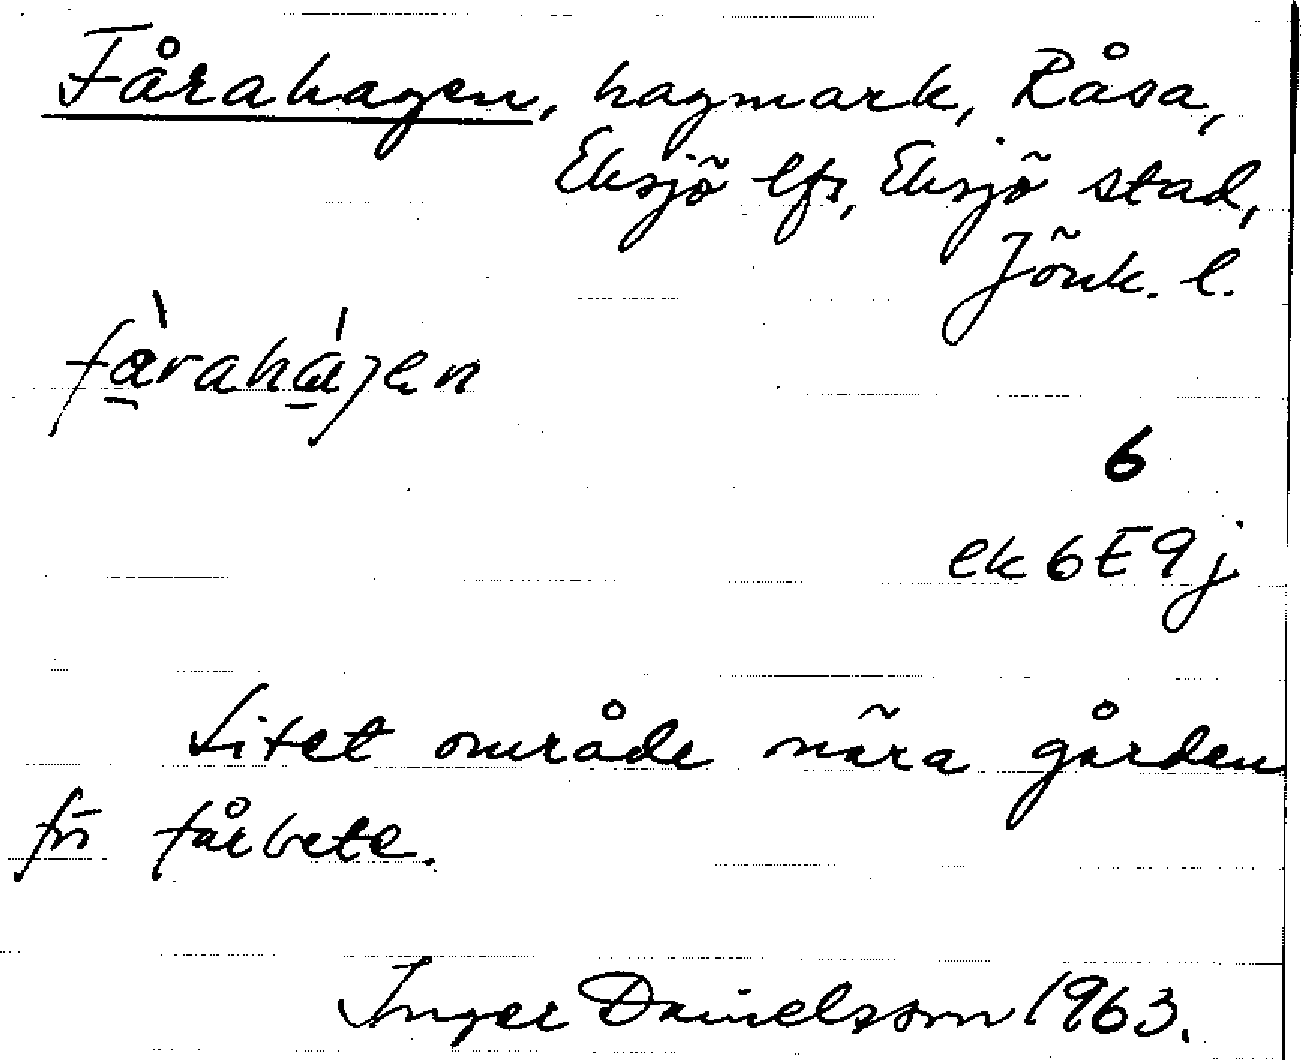 Fårahagen, hagmark, Råsa,
Eksjö lfs, Eksjö stad,
Jönk. l.
fàrahájen
6
ek 6E9j
Litet område nära gården
för fårbete.
Inger Danielsson 1963.